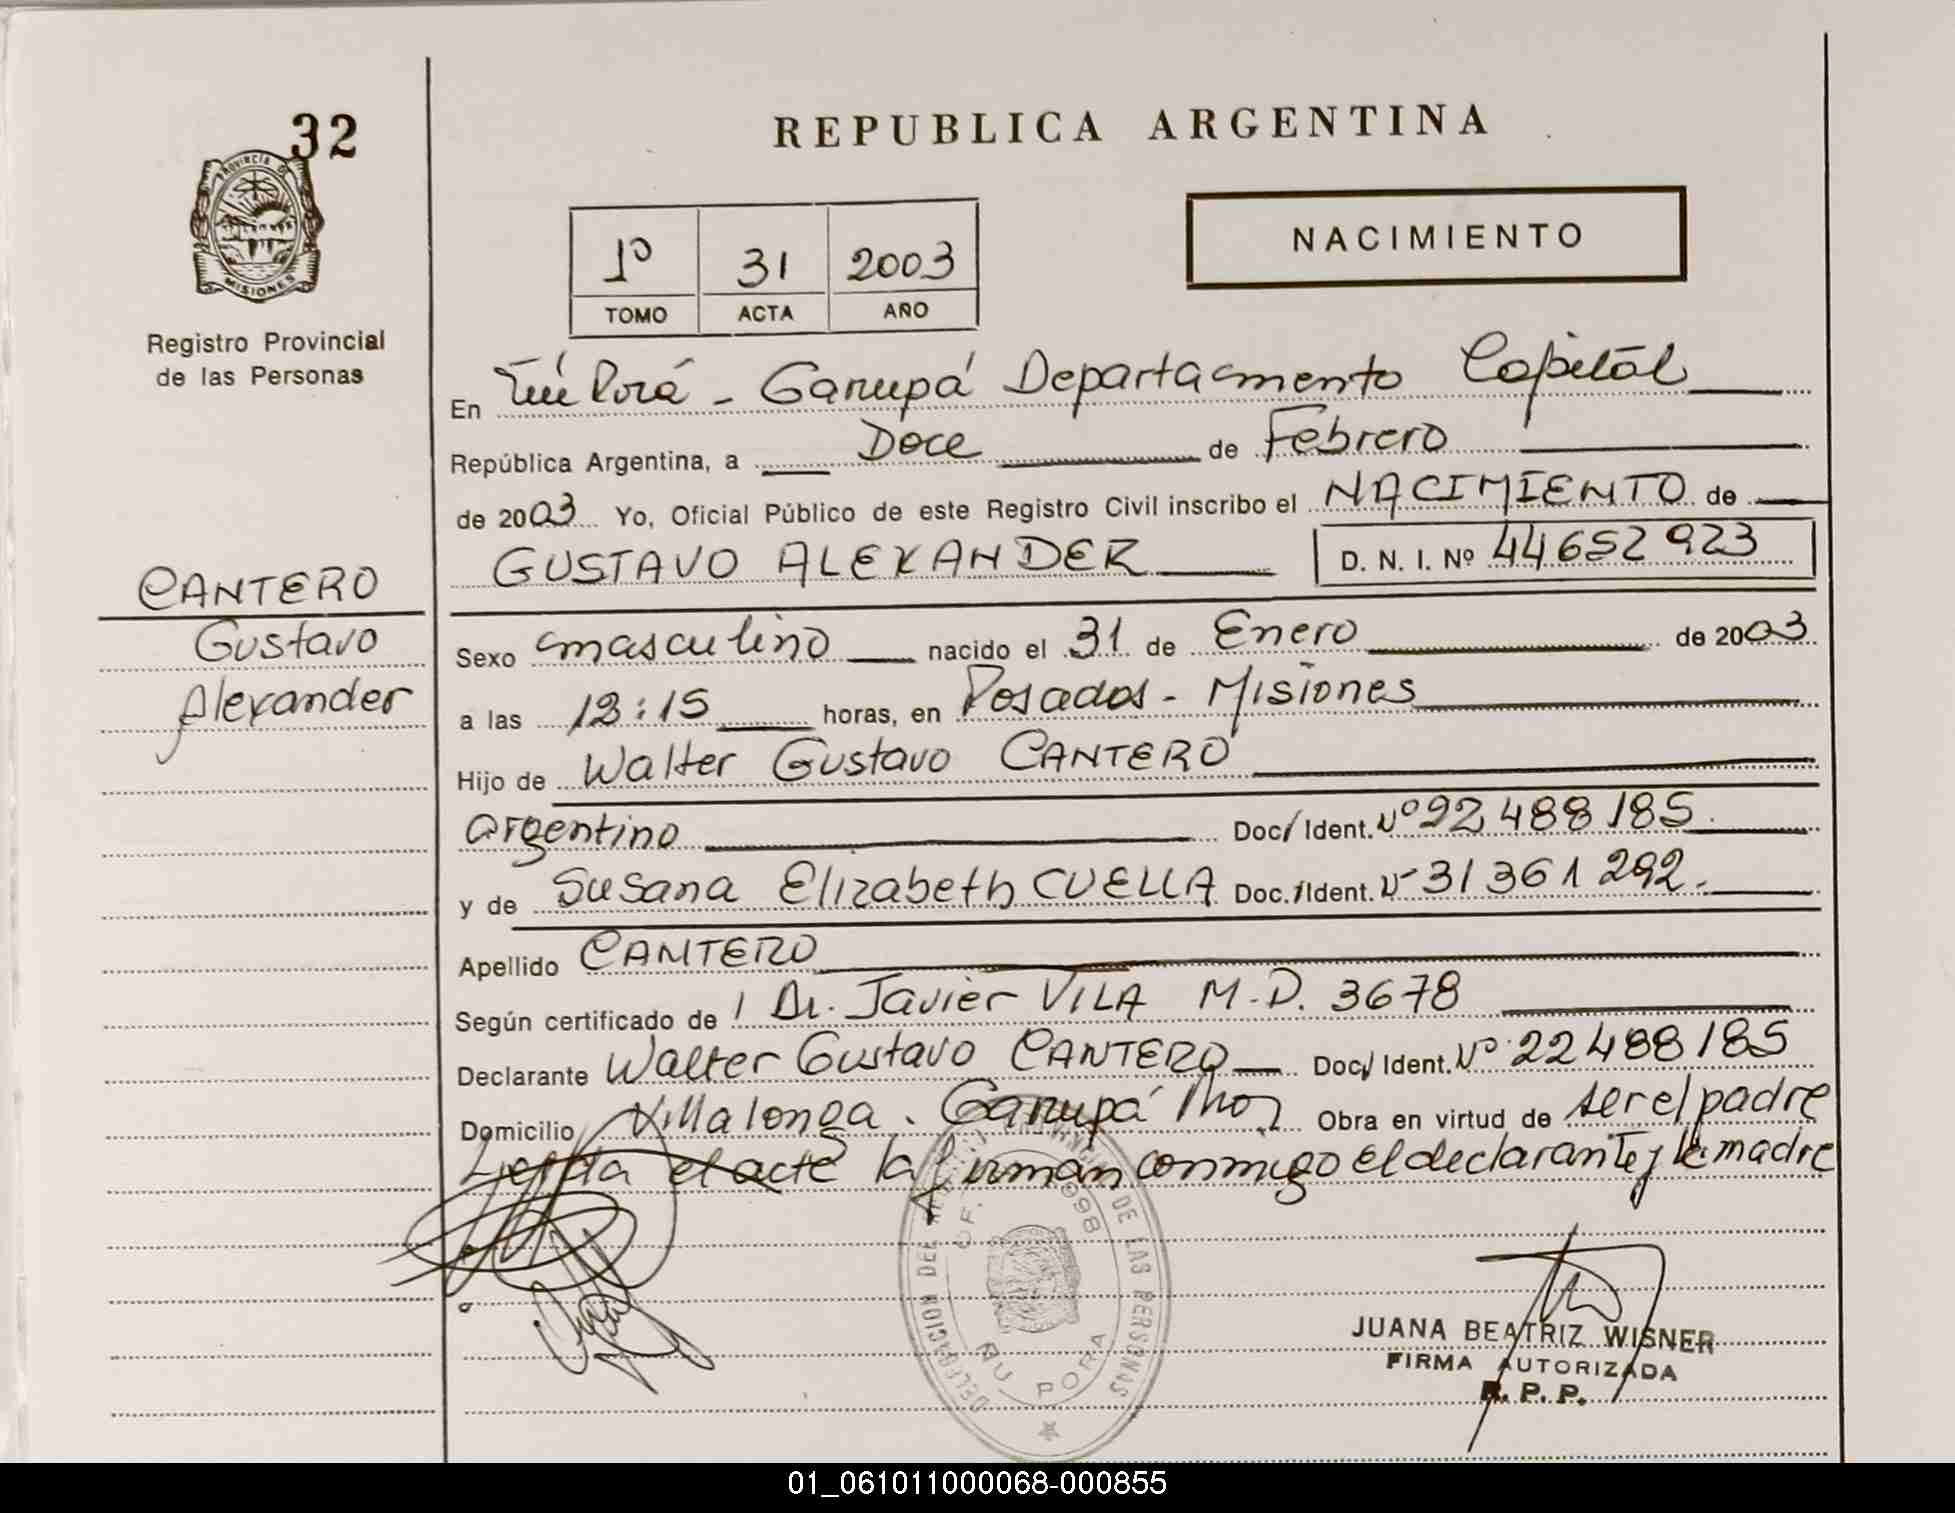 32
REPUBLICA ARGENTINA
PROVINCIA DE MISIONES
NACIMIENTO
1º 31 2003
TOMO ACTA AÑO
Registro Provincial
de las Personas
En Porá - Garupá Departamento Capital
República Argentina, a Doce de Febrero
de 2003 Yo, Oficial Público de este Registro Civil inscribo el NACIMIENTO de
GUSTAVO ALEXANDER D. N. I. Nº 44652923
CANTERO
Gustavo
Alexander
Sexo masculino nacido el 31 de Enero de 2003
a las :15 horas, en Posadas - Misiones
Hijo de Walter Gustavo CANTERO
argentino Doc/ Ident. Nº 488185
y de Susana Elizabeth CUELLA Doc./Ident. Nº 31361292.
Apellido CANTERO
Según certificado de Dr. Javier VILA M.D. 3678
Declarante Walter Gustavo CANTERO Doc/ Ident. Nº 22488185
Domicilio Villalonga. Garupá Obra en virtud de ser el padre
Leída el acta la firman conmigo el declarante y la madre
DELEGACION DEL DE LAS PERSONAS
OF. 998
ÑU PORA
JUANA BEATRIZ WISNER
FIRMA AUTORIZADA
R. P. P.
01_061011000068-000855